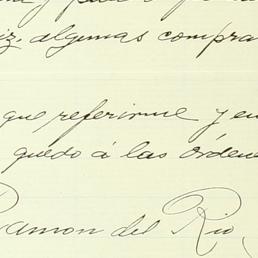 iz. algunas compra
que referirme y en
quedo á las órdene
Ramon del Rio,